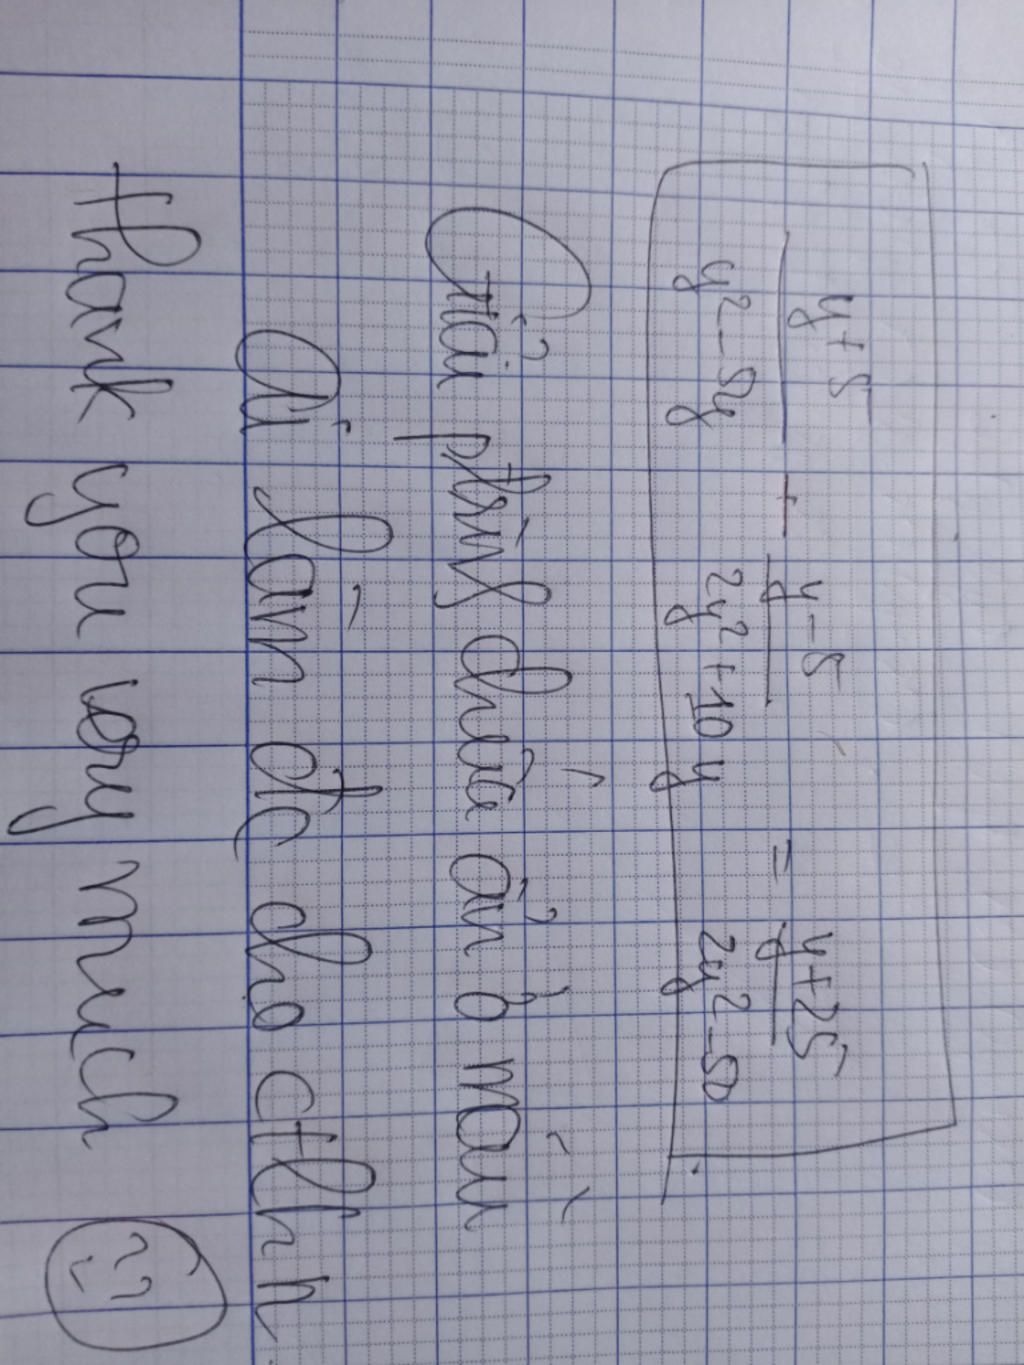 \frac{y+5}{y^2-5y} - \frac{y-5}{2y^2+10y} = \frac{y+25}{2y^2-50}
Giải ptrình chứa ẩn ở mẫu
Ai làm đc cho ctlhn
thank you very much